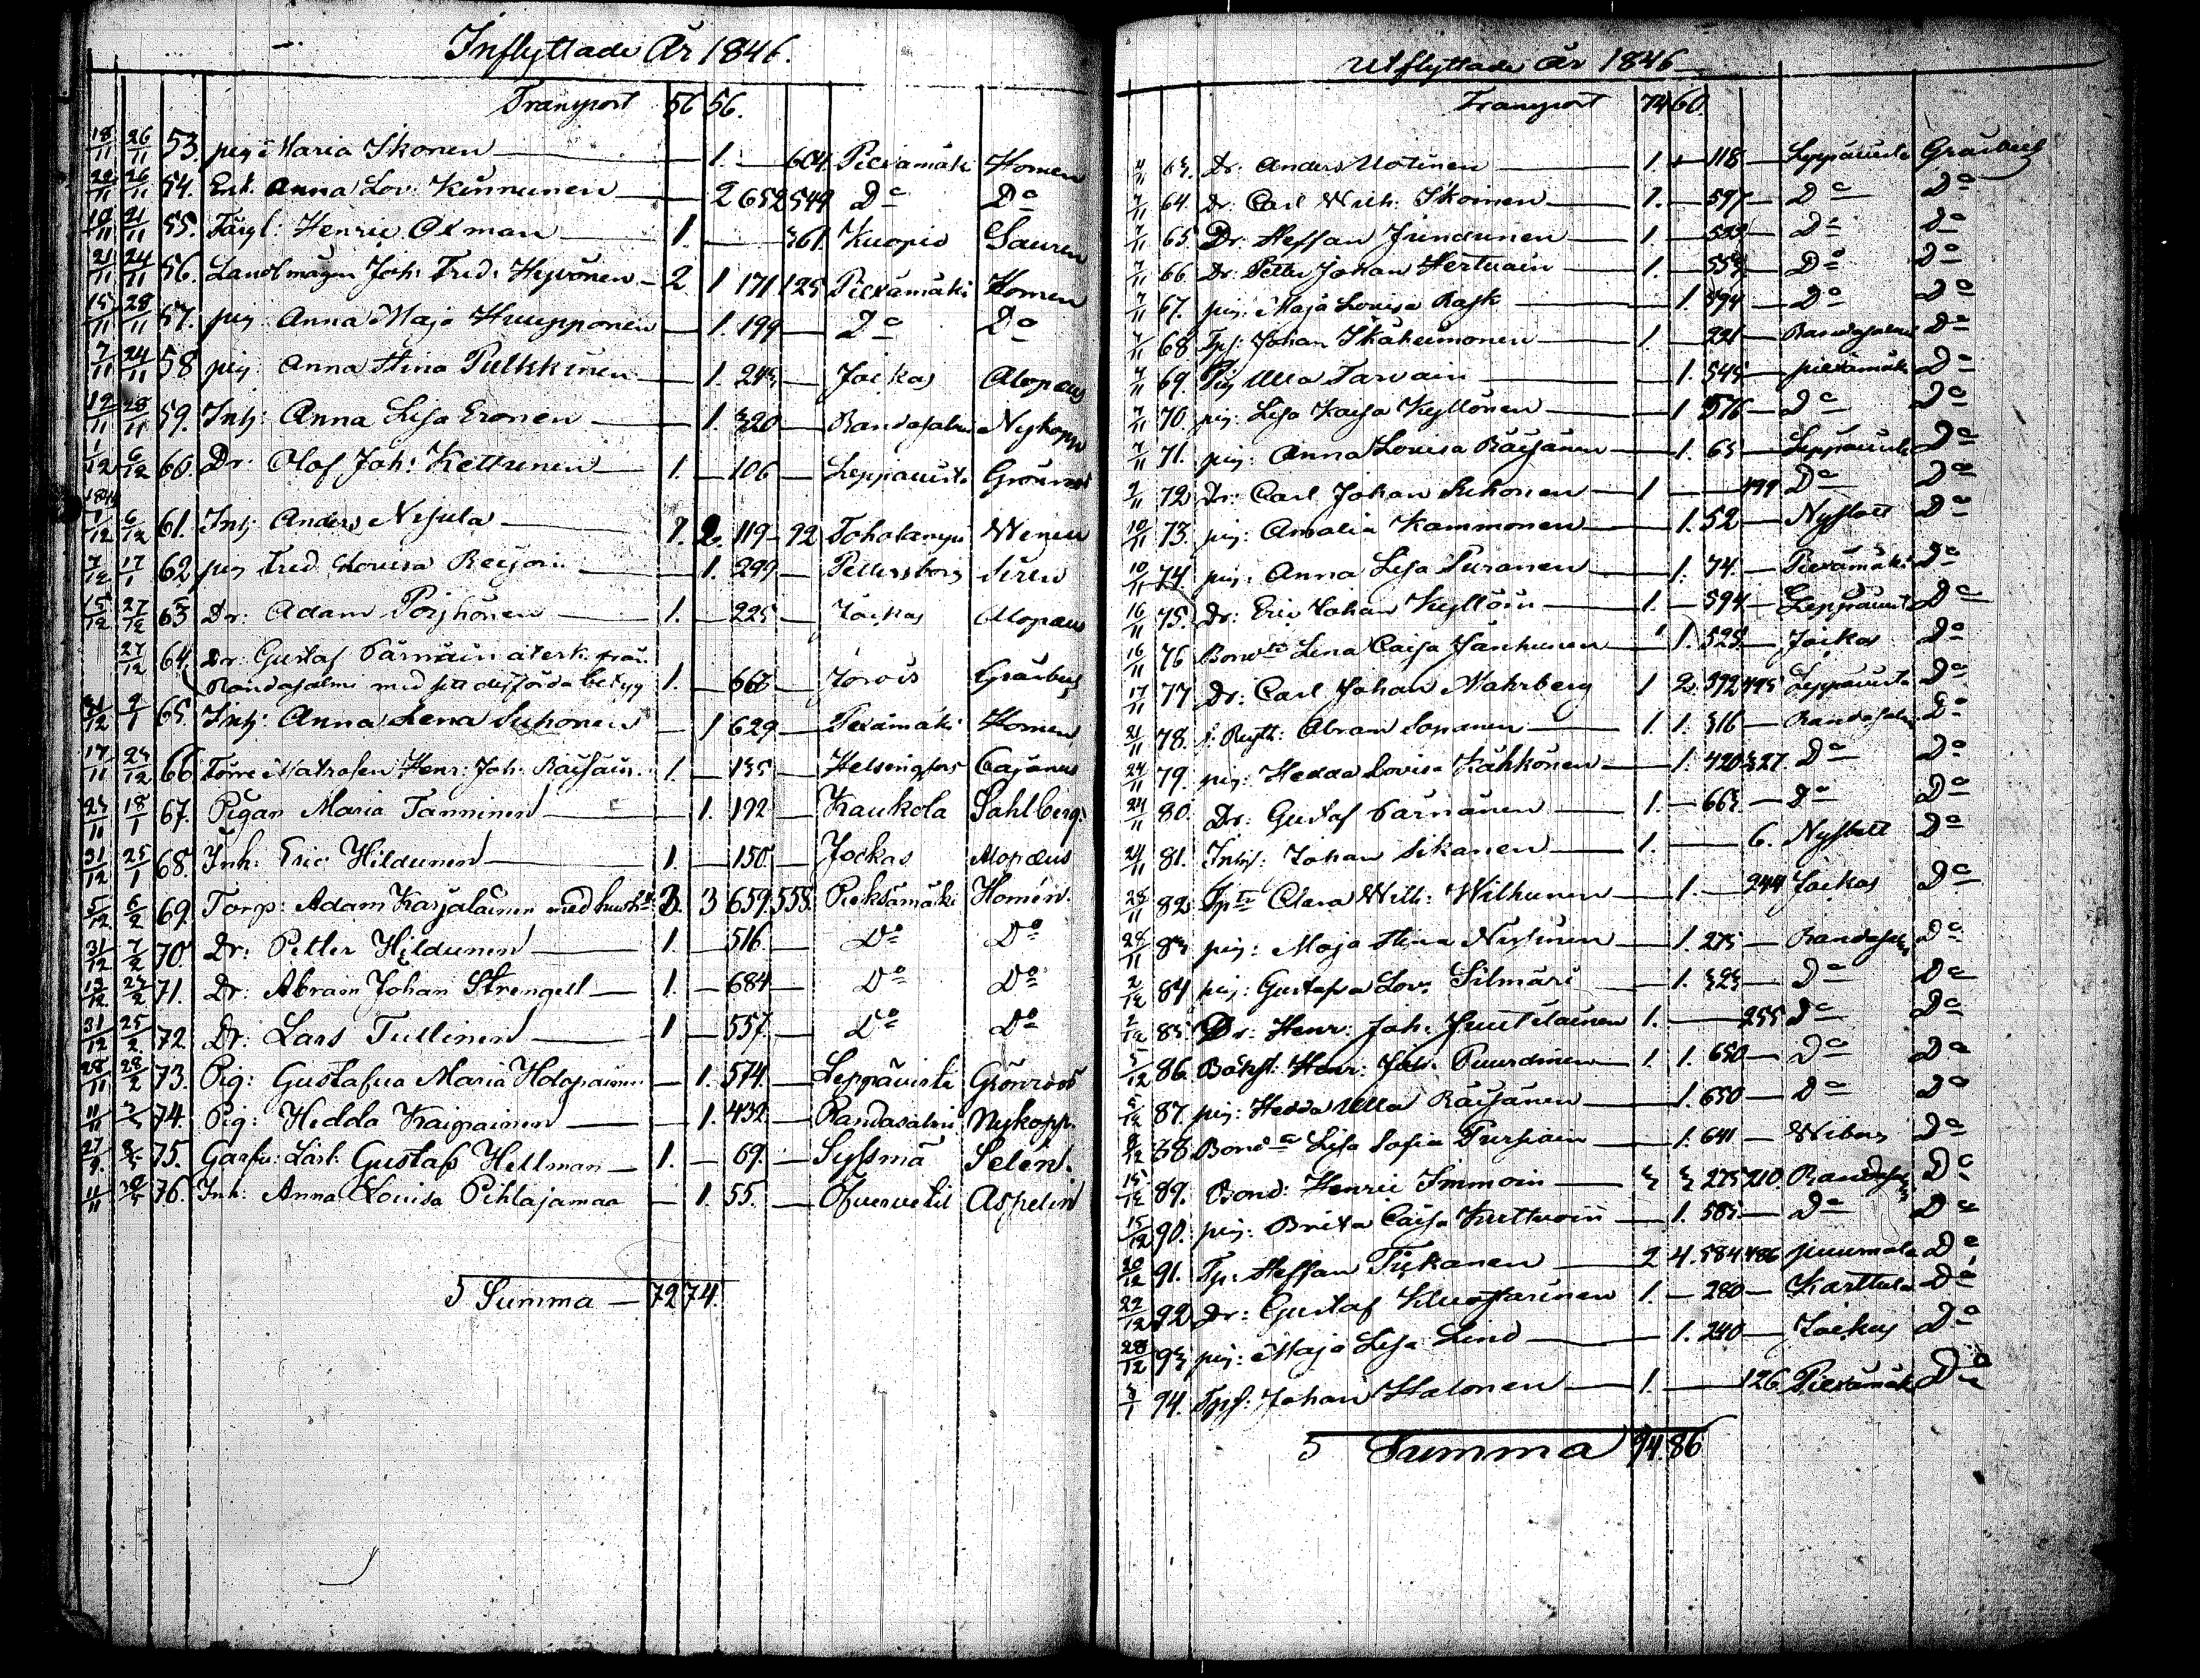 Inflyttade År 1846.
Transport 56 56.
18/11 26/11 53. pig: Maria Ikonen — 1. — 604 Piexämäki Homen
22/11 26/11 54. Enk. Anna Lov: Kinnunen — 2 652 549 Do Do
10/11 21/11 55. Färgl: Henric Oxman 1. — 361 Kuopio Sauren
21/11 24/11 56. Landtmägn Joh: Fred: Hyvönen 2 1 171 125 Piexämäki Homen
15/11 28/11 57. pig Anna Maja Huupponen — 1. 199 — Do Do
7/11 24/11 58 pig: Anna Stina Pulkkinen — 1. 243 — Jockas Alopæus
12/11 28/11 59. Inh: Anna Lisa Eronen — 1. 320 — Randasalmi Nykopp
1/12 6/12 60. Dr: Olof Joh: Kettunen 1. — 106 — Leppävirta Grönroos
7/12 6/12 61. Inh: Anders Nesula 1. 2. 119 — 92 Toholampi Wenell
7/12 17/1 62 pig Fred. Lovisa Reijoin — 1. 299 — Pettersborg Siren
15/12 27/12 63 Dr: Adam Poijhönen 1. — 225 — Jockas Alopæus
27/12 64. Dr: Gustaf Pärnäin återk. från
Randasalmi med sitt ditförda betyg 1. — 662 — Jorois Gråsten
31/12 2/1 65. Inh: Anna Lena Suhonen — 1 629 — Pexämäki Homen
17/11 23/12 66 Förre Matrosen Henr: Joh: Räisäin. 1. — 135 — Helsingfors Cajanus
23/11 18/1 67. Pigan Maria Tanninen — 1. 192 — Kaukola Sahlberg.
31/12 25/1 68. Inh: Eric Hildunen 1. — 150 — Jockas Alopæus
5/12 6/2 69. Torp: Adam Karjalainen med hustr: 3. 3 659. 558. Pieksämäki Homén.
31/12 7/2 70. Dr: Petter Hildunen 1. — 516 — Do Do
13/12 23/2 71. Dr: Abram Johan Strengell — 1. — 684 — Do Do
31/12 25/2 72. Dr: Lars Tullinen 1 — 557. — Do Do
28/11 28/2 73. Pig: Gustafva Maria Holopainen — 1. 574. — Leppävirta Grönroos
11/11 74. Pig: Hedda Kaipainen — 1. 432. — Randasalmi Nykopp.
75. Garfv: Lärl: Gustaf Hellman — 1. — 69. — Syssmä Selent.
76. Inh: Anna Lovisa Pihlajamaa — 1. 55. — Öfvervetil Aspelin
S Summa — 72 74.
Utflyttade år 1846
Transport 74 60.
63. Dr: Anders Motinen 1. — 118 — Leppävirta
7/11 64. Dr: Carl Wilh: Ikoinen 1. — 597 — Do Do
7/11 65. Dr: Steffan Jundunen 1. — 533 — Do Do
7/11 66. Dr: Petter Johan Hertuain 1. — 553 — Do Do
7/11 67. pig: Maja Lovisa Rask — 1. 594 — Do Do
7/11 68. Tpf: Johan Ikäheimonen 1. — 221 — Randasalmi Do
7/11 69. Pig Ulla Tarvain — 1. 545 — piexämäki Do
7/11 70. pig: Lisa Kaisa Kyllönen — 1 576 — Do Do
7/11 71. pig: Anna Lovisa Räisänen — 1. 65 — Leppävirta Do
7/11 72. Dr: Carl Johan Suhonen 1 — — 499 Do Do
10/11 73. pig: Amalia Kammonen — 1. 52 — Nyslott Do
10/11 74. pig: Anna Lisa Puranen — 1. 74. — Piexämäki Do
16/11 75. Dr: Eric Johan Kyllöin 1. — 594 — Leppävirta Do
16/11 76 Bond: Lena Caisa Janhunen — 1. 525. — Jockas Do
17/11 77 Dr: Carl Johan Wahrberg 1 2. 392 495 Leppävirta Do
21/11 78. Abram Sopanen 1. 1. 316 — Randasalmi Do
24/11 79. pig: Hedda Lovisa Kähkönen — 1. 420 327. Do Do
24/11 80. Dr: Gustaf Pärnänen 1. — 663. — Do Do
24/11 81. Inhs: Johan Sikanen 1. — — 6. Nyslott Do
28/11 82. Clara Wilh: Wilhunen — 1. — 244 Jockas Do
28/11 83 pig: Maja Stina Nissinen — 1. 275 — Randasalmi Do
2/12 84 pig: Gustafva Lov: Silmäri — 1. 323 — Do Do
2/12 85. Dr: Henr: Joh: Juutilainen 1. — — 255 Do Do
5/12 86. Henr: Joh: Puurdinen 1. 1. 650 — Do Do
5/12 87. pig: Hedda Ulla Räisänen — 1. 650 — Do Do
8/12 88. Bond: Lisa Sofia Pursiain — 1. 641 — Wiborg Do
15/12 89. Bond: Henric Immoin 3 3 275 210 Randasalmi Do
15/12 90. pig: Brita Caisa Kuttvoin — 1. 585. — Do Do
20/12 91. Tp: Steffan Tiikanen 2 4. 584 486 puumala Do
22/12 92. Dr: Gustaf Kluostarinen 1. — 280 — Karttula Do
28/12 93 pig: Maja Lisa Lind — 1. 240 — Jockas Do
94. Tpf: Johan Halonen 1. — — 126. Piexämäki Do
S Summa 94. 86